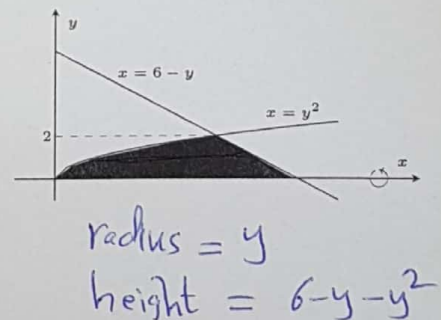 y
x = 6 − y
x = y²
2
x
radius = y
height = 6-y-y²